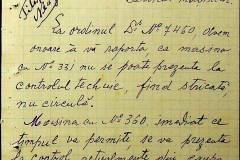 La ordinul D-v. No 7460, avem
onoare a vă raporta, ca masina
cu No 331 nu se poate prezenta la
controlul technic, fiind stricată,
nu circulă.
Masina cu No 360, imediat ce
timpul va permite, se va prezenta
la control